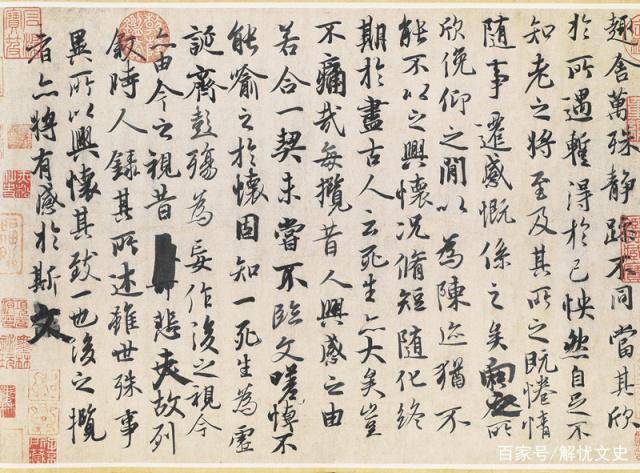 趣舍萬殊静躁不同當其欣
於所遇暫得於己怏然自足不
知老之將至及其所之既惓情
随事遷感慨係之矣向之所
欣俛仰之閒以為陳迹猶不
能不以之興懷況脩短随化終
期於盡古人云死生亦大矣豈
不痛哉每攬昔人興感之由
若合一契未嘗不臨文嗟悼不
能喻之於懷固知一死生為虛
誕齊彭殤為妄作後之視今
亦由今之視昔悲夫故列
叙時人錄其所述雖世殊事
異所以興懷其致一也後之攬
者亦將有感於斯文
百家号/解忧文史